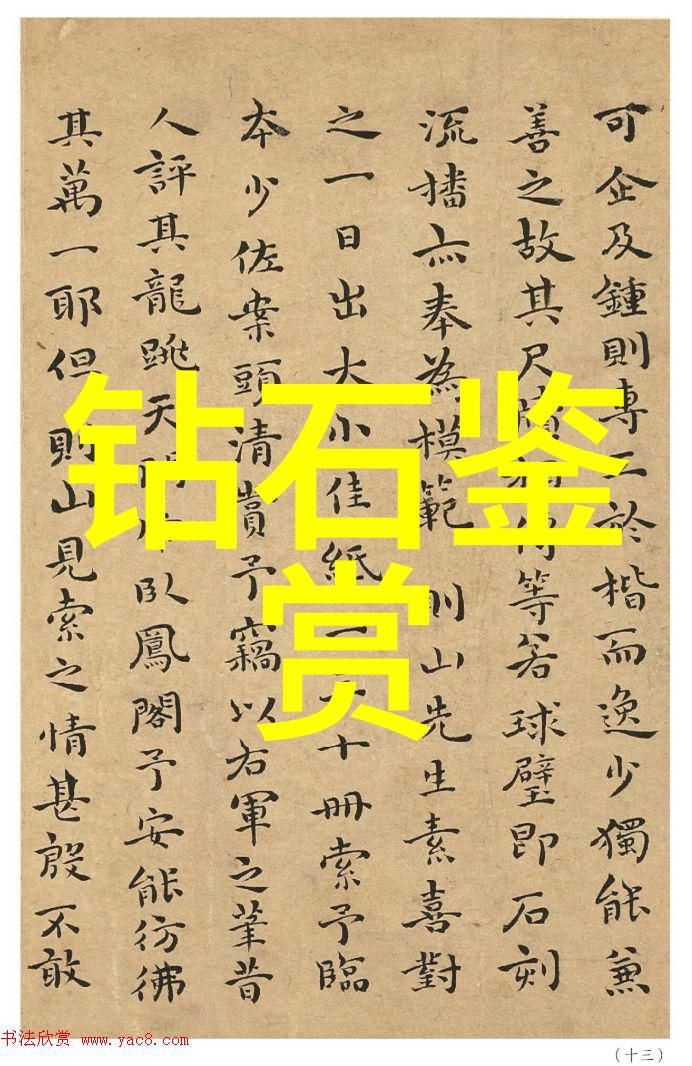 可企及鍾則專工於楷而逸少獨能兼
善之故其尺牘等若球璧即石刻
流播亦奉為模範 則山先生素喜對
之一日出大小佳紙一十冊索予臨
本少佐案頭清賞予竊以右軍之筆昔
人評其龍跳天門虎臥鳳閣予安能彷彿
其萬一耶但則山見索之情甚殷不敢
钻石鉴
赏
书法欣赏 www.yac8.com
（十三）